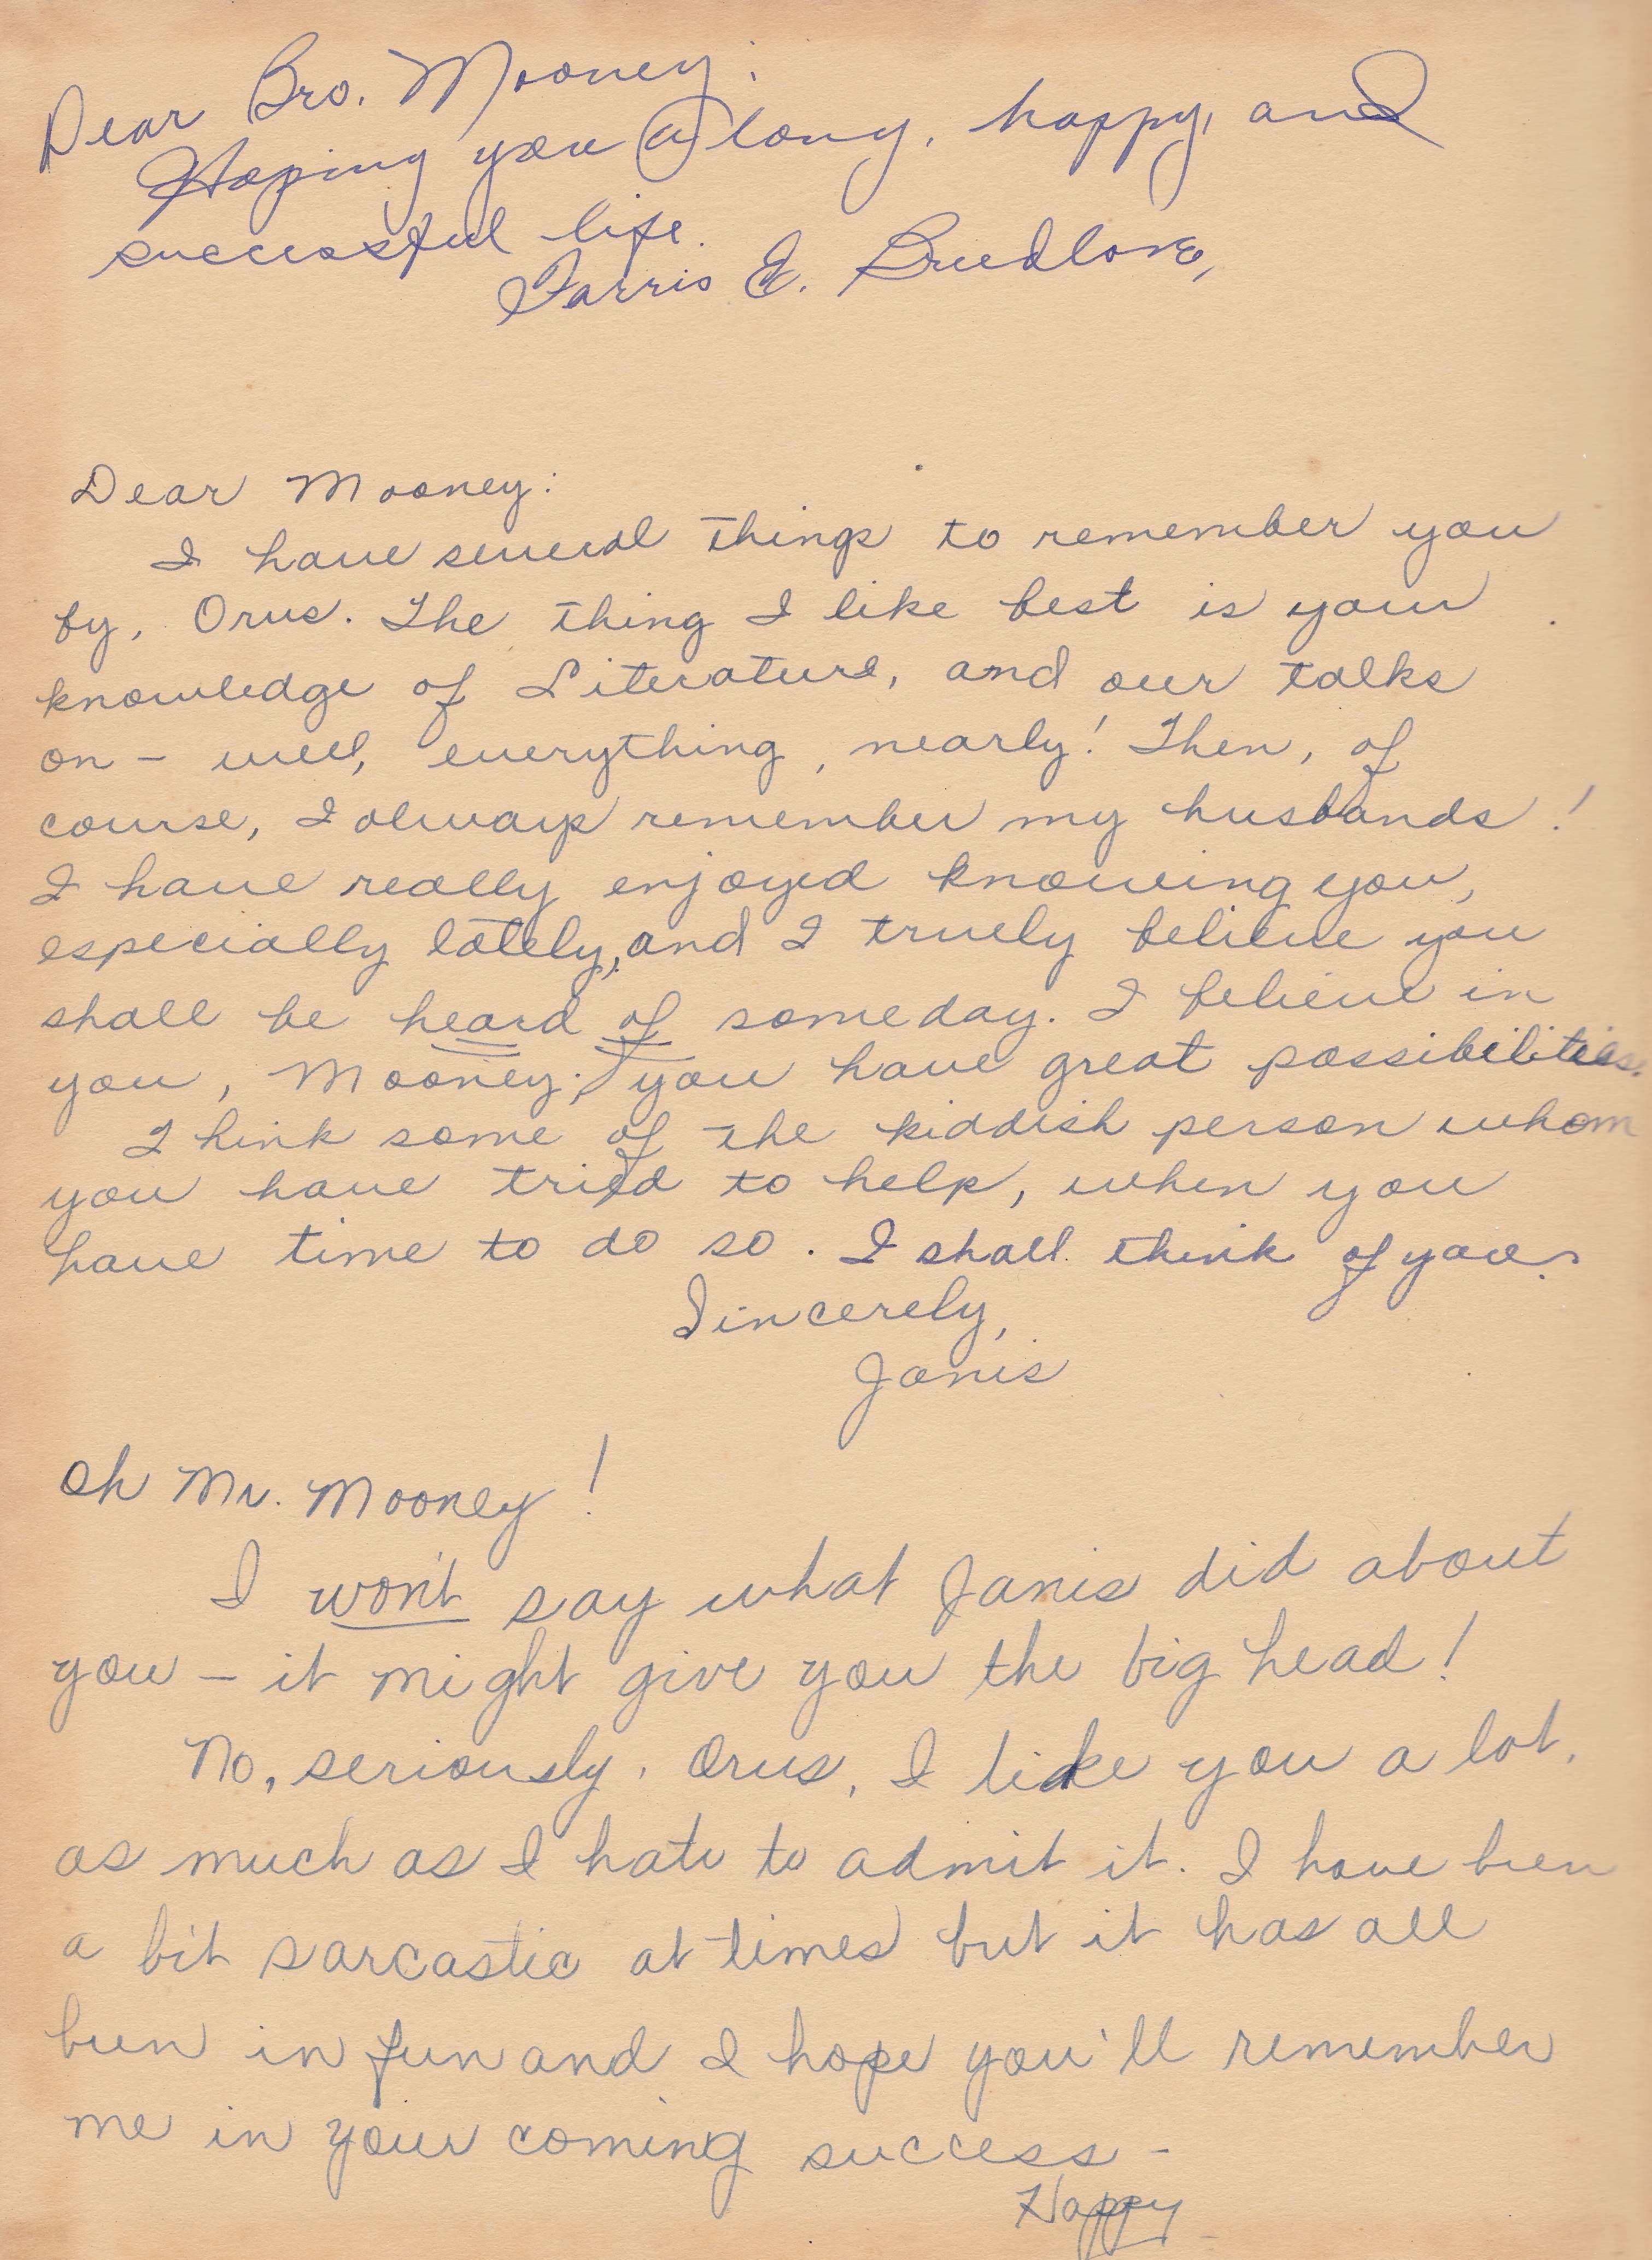 Dear Bro. Mooney:
Hoping you a long, happy, and
successful life.
Farris E. Breedlove,
Dear Mooney:
I have several things to remember you
by, Orus. The thing I like best is your
knowledge of Literature, and our talks
on - well, everything, nearly! Then, of
course, I always remember my husbands!
I have really enjoyed knowing you,
especially lately, and I truely believe you
shall be heard of someday. I believe in
you, Mooney; you have great possibilities.
Think some of the kiddish person whom
you have tried to help, when you
have time to do so. I shall think of you.
Sincerely,
Janis
Oh Mr. Mooney!
I won't say what Janis did about
you - it might give you the big head!
No, seriously, Orus, I like you a lot,
as much as I hate to admit it. I have been
a bit sarcastic at times but it has all
been in fun and I hope you'll remember
me in your coming success -
Happy